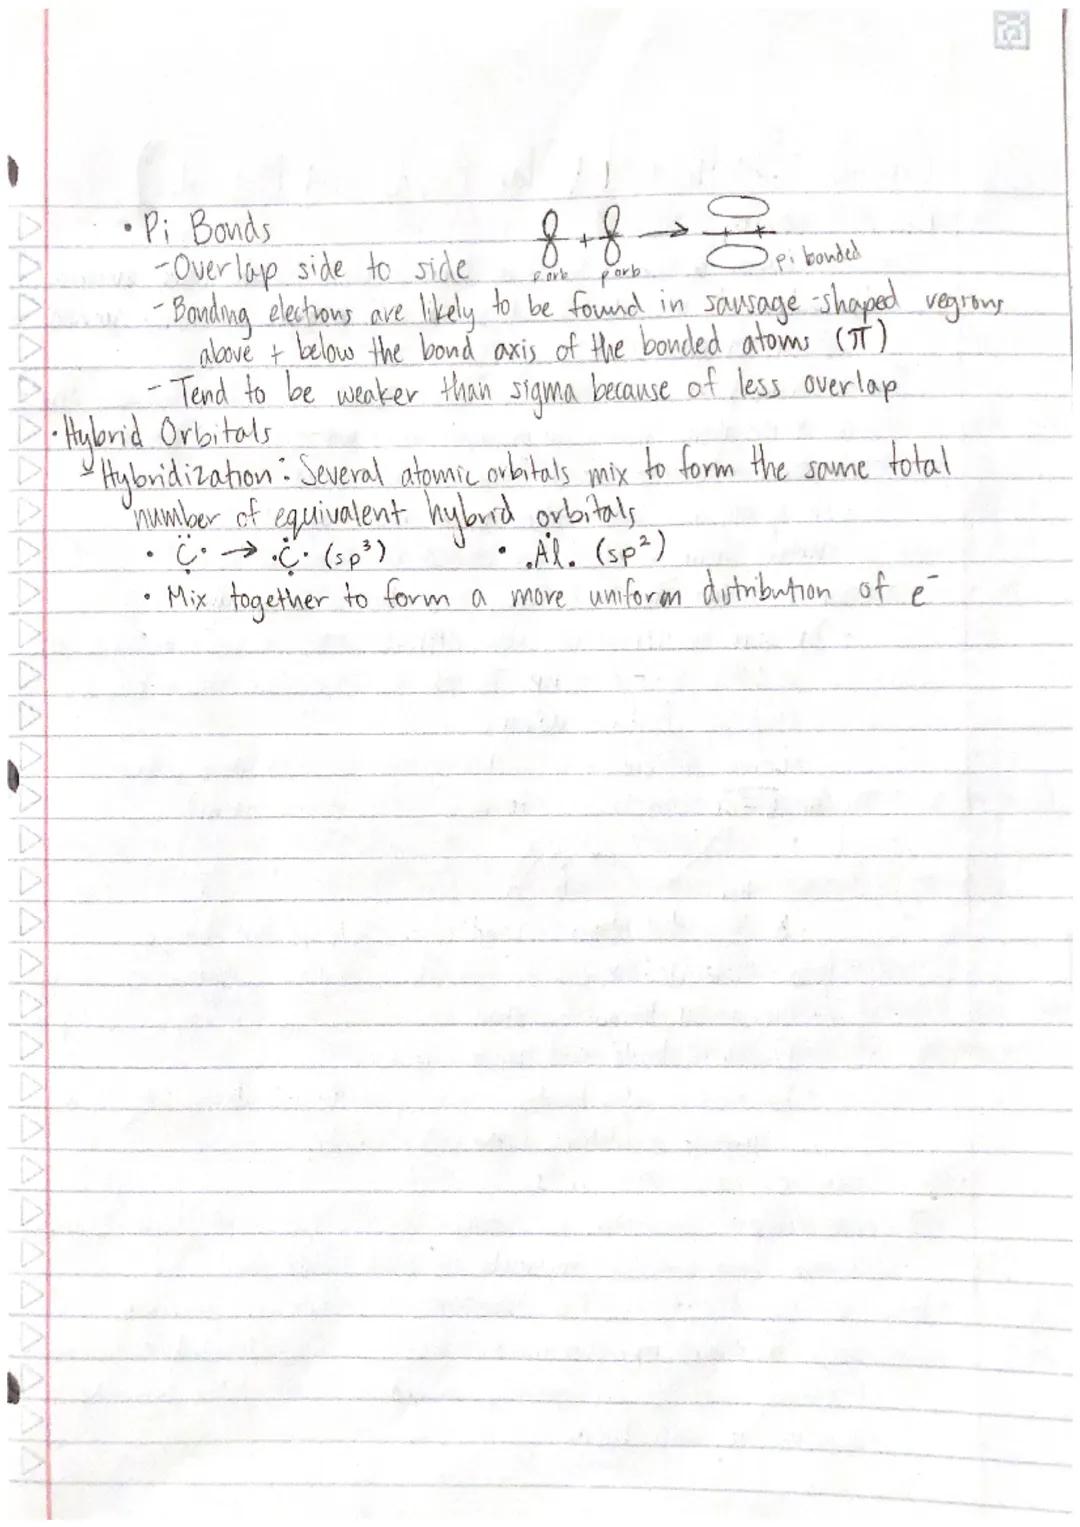 • Pi Bonds
- Overlap side to side
p orb + p orb → pi bonded
- Bonding electrons are likely to be found in sausage-shaped regions
above + below the bond axis of the bonded atoms (π)
- Tend to be weaker than sigma because of less overlap
• Hybrid Orbitals
Hybridization: Several atomic orbitals mix to form the same total
number of equivalent hybrid orbitals
• C → C (sp³) • Al (sp²)
• Mix together to form a more uniform distribution of e⁻